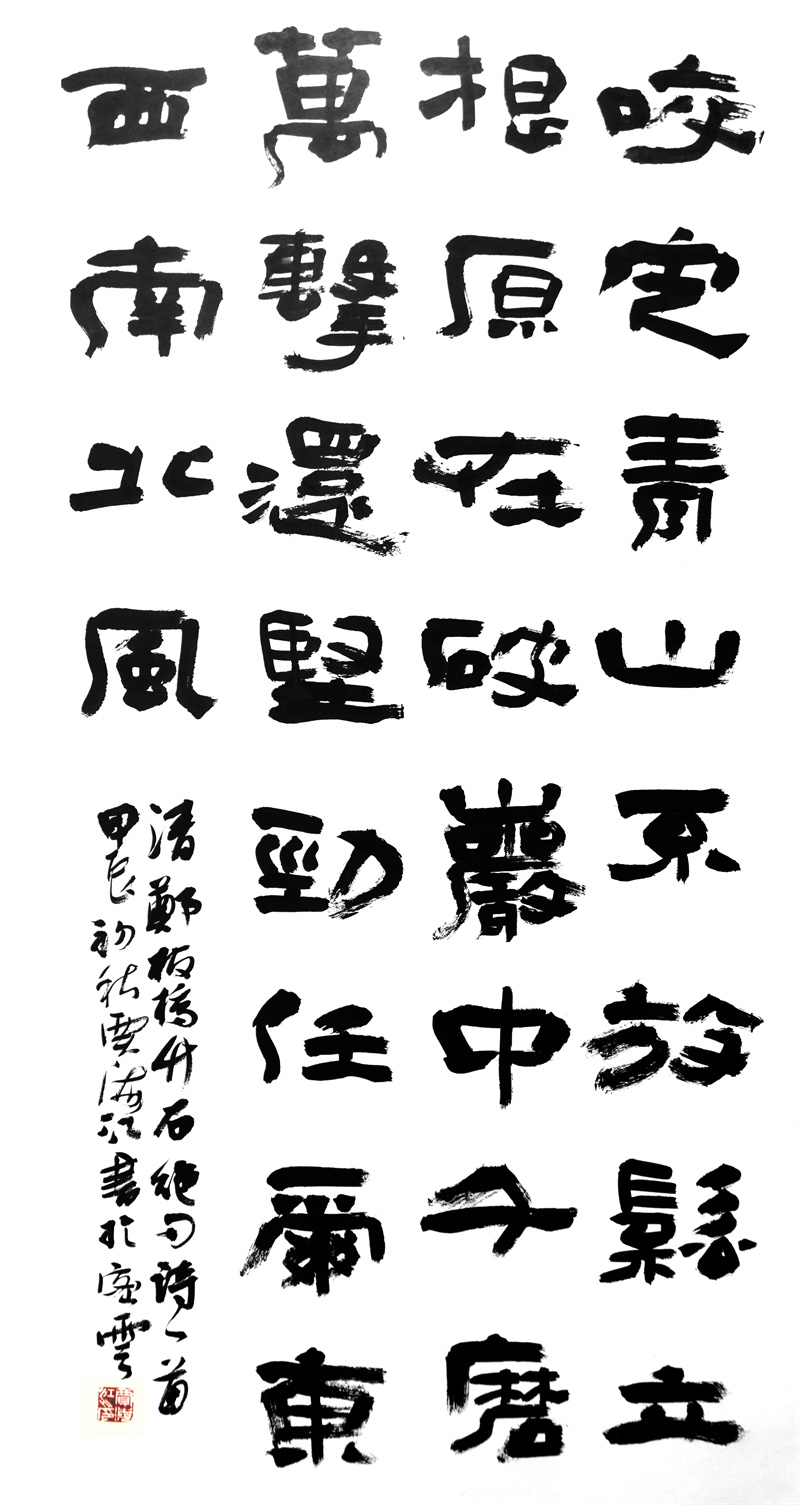 咬定青山不放鬆立
根原在破巖中千磨
萬擊還堅勁任爾東
西南北風
清鄭板橋竹石絕句詩一首
甲辰初秋賈海江書於密雲